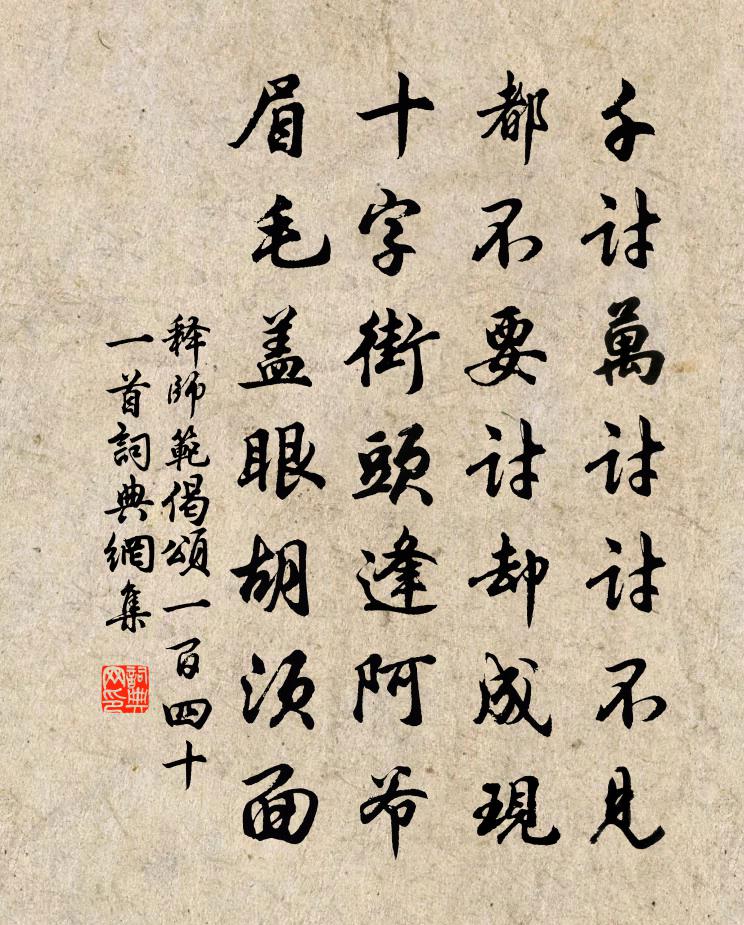 千討萬討討不見
都不要討却成現
十字街頭逢阿爷
眉毛盖眼胡须面
释師範偈頌一百四十
一首詞典網集
詞典网印